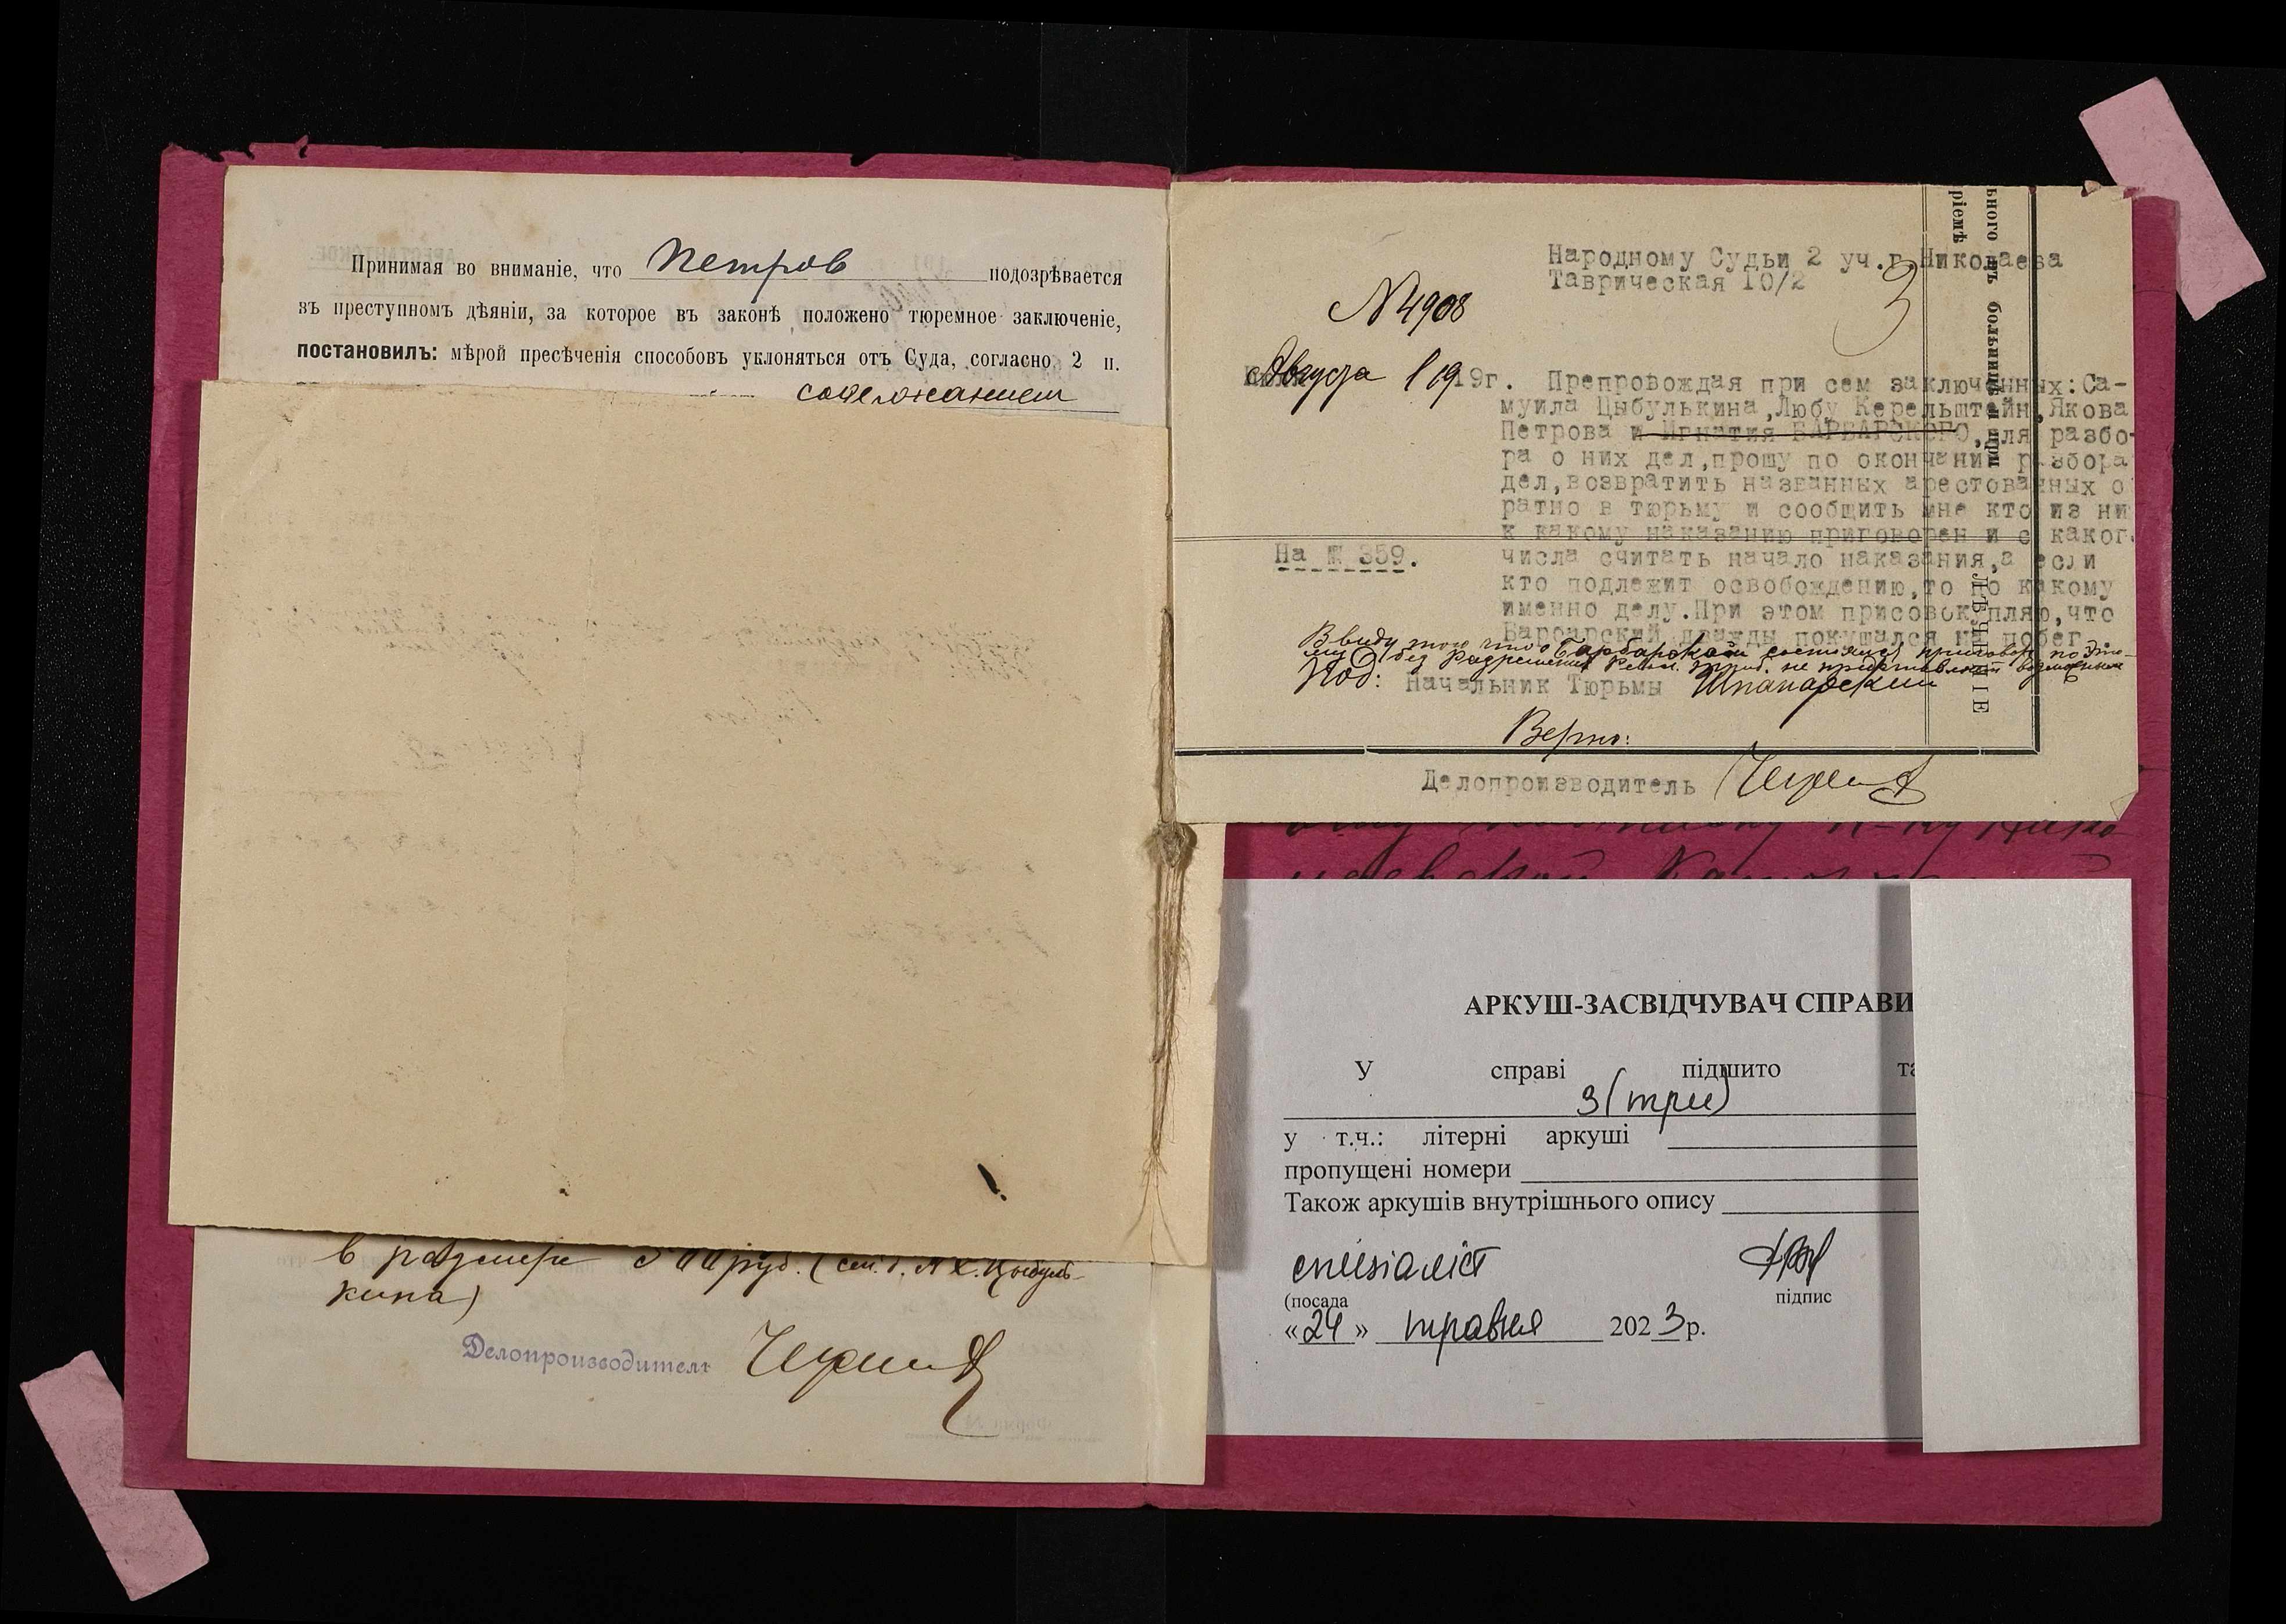 Принимая во вниманіе, что Петров подозрѣвается
въ преступномъ дѣяніи, за которое въ законѣ положено тюремное заключеніе,
постановилъ: мѣрой пресѣченія способовъ уклоняться отъ Суда, согласно 2 п.
содержанием
в размере руб. (сем. Цыбуль-
кина)
Делопроизводитель
Народному Судьи 2 уч.г.Николаева
Таврическая 10/2
3
N 4908
Августа 1 19 19г. Препровождая при сем заключенных:Са-
муила Цыбулькина,Любу Керельштейн,Якова
Петрова и Игнатия БАРБАРСКОГО,для разбо-
ра о них дел,прошу по окончании разбора
дел,возвратить названных арестованных о
ратно в тюрьму и сообщить мне кто из ни
к какому наказанию приговорен и с каког
На № 359.
числа считать начало наказания,а если
кто подлежит освобождению,то по какому
именно делу.При этом присовокупляю,что
Барбарский дважды покушался на побег.
Ввиду того что о Барбарском состоялся приговор поэто-
му без разрешения Рев. Триб. не представляет возможным
Под: Начальник Тюрьмы Шпанарский
Верно:
Делопроизводитель
ьного въ больницѣ и при
ріемѣ
ЛѢЧЕНІЕ
АРКУШ-ЗАСВІДЧУВАЧ СПРАВИ
У справі підшито та
3 (три)
у т.ч.: літерні аркуші
пропущені номери
Також аркушів внутрішнього опису
спеціаліст
(посада підпис
«24» травня 2023р.